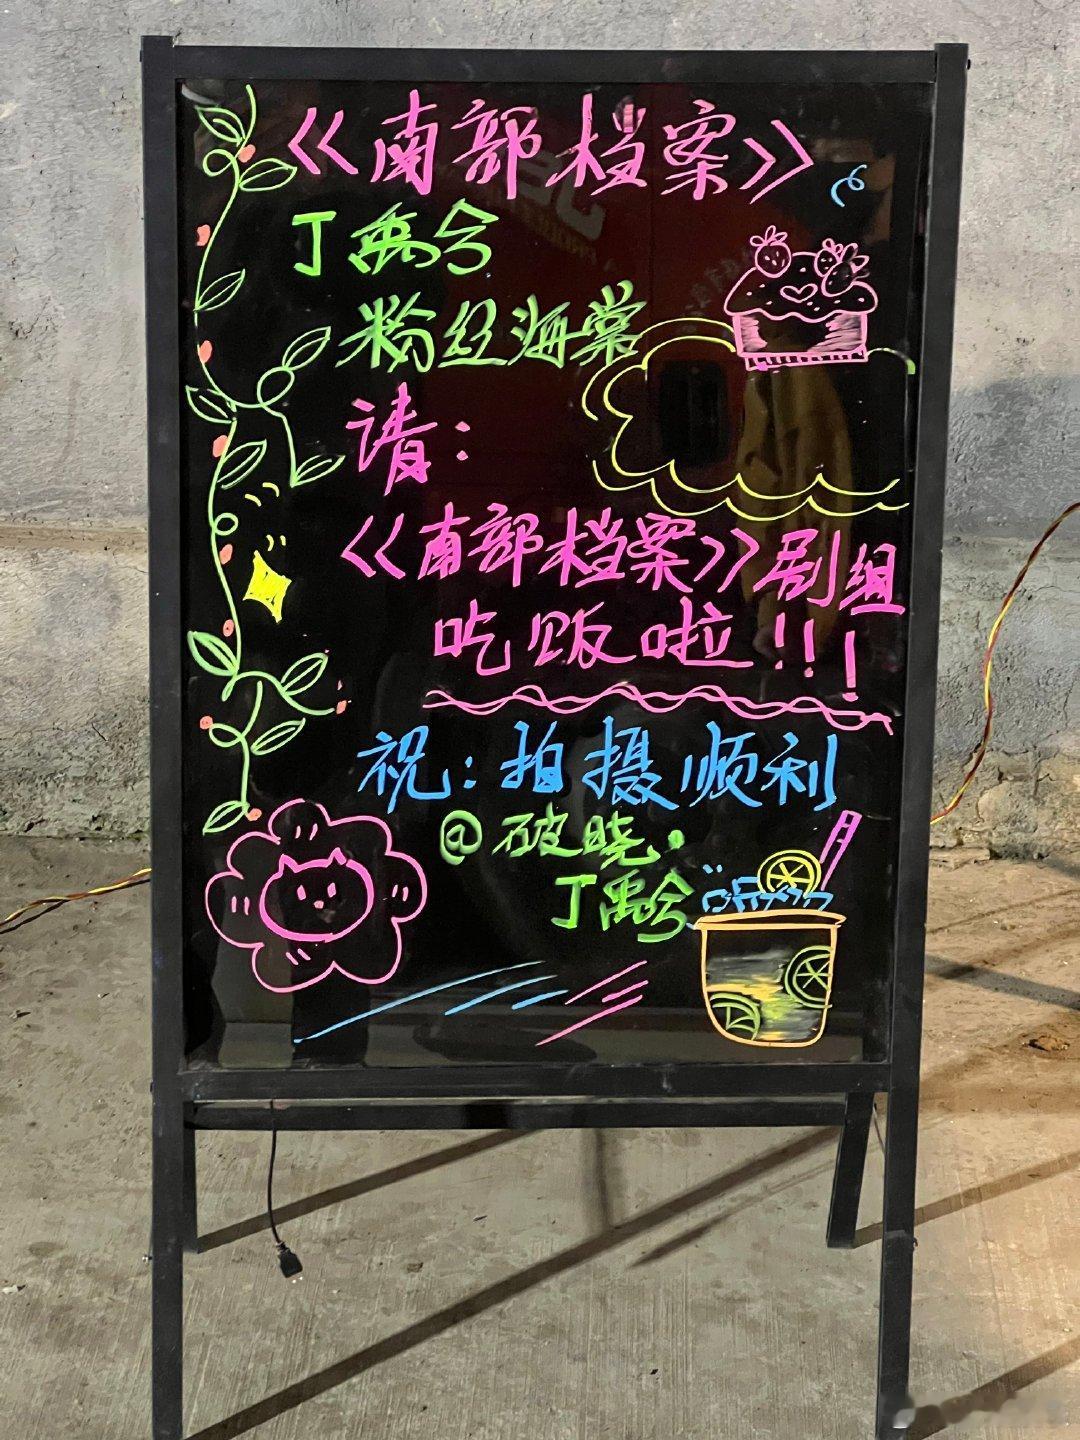 《南部档案》
丁禹兮
粉丝海棠
请：
《南部档案》剧组
吃饭啦！！！
祝：拍摄顺利
@破晓·
丁禹兮